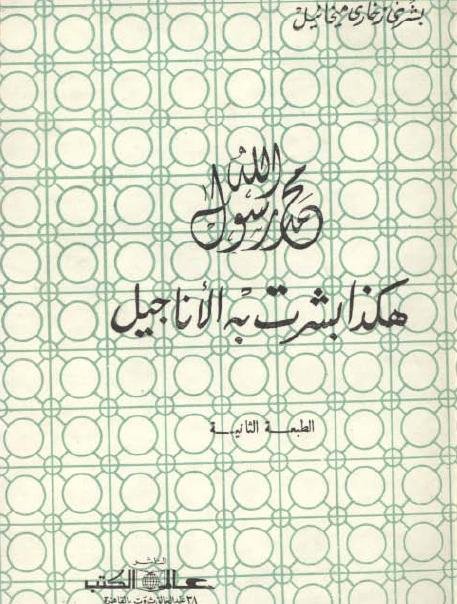 بشرى زخارى ميخائيل
محمد رسول الله
هكذا بشرت به الأناجيل
الطبعة الثانية
الناشر
عالم الكتب
٣٨ عبد الخالق ثروت بالقاهرة